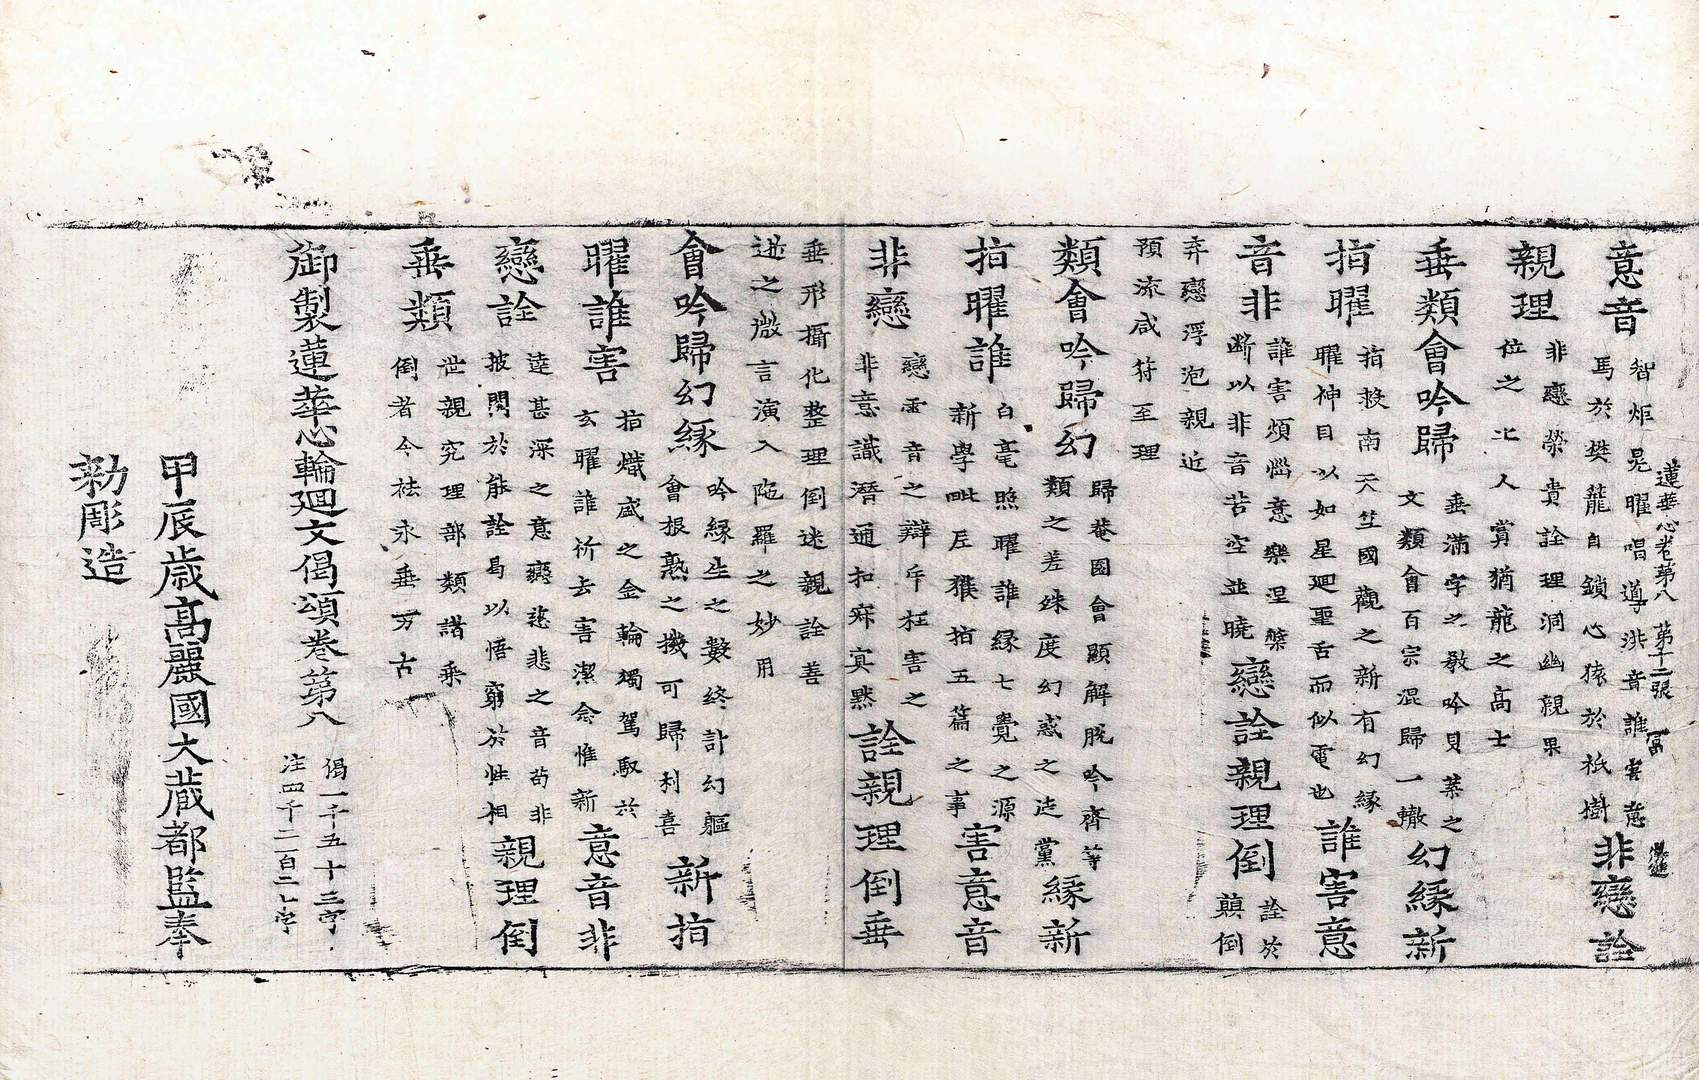 蓮華心卷第八 第十二張 富
意音 智炬晃曜唱導洪音誰害意
馬於樊蘢自鎖心猿於祇樹 非戀詮
親理 非戀榮貴詮理洞幽親累
位之北人賞猶龍之高士
垂類會吟歸 垂滿字之敎吟貝葉之
文類會百宗混歸一轍 幻緣新
指曜 指授南天竺國觀之新有幻緣
曜神目以如星廻聖舌而似電也 誰害意
音非 誰害煩惱意樂涅槃
斷以非音苦空並曉 戀詮親理倒 詮於
顚倒
弃戀浮泡親近
預流咸符至理
類會吟歸幻 歸菴園會顯解脫吟齊等
類之差殊度幻惑之迷黨 緣新
指曜誰 白毫照曜誰緣七覺之源
新學毗尼獲指五篇之事 害意音
非戀 戀靈音之辯斥枉害之
非意識潛通扣寂寞默 詮親理倒垂
垂形攝化整理倒迷親詮善
逝之微言演入陁羅之妙用
會吟歸幻緣 吟緣生之數終計幻軀
會根熟之機可歸利喜 新指
曜誰害 指熾盛之金輪獨駕馭於
玄曜誰祈去害潔念惟新 意音非
戀詮 達甚深之意戀慈悲之音苟非
披閱於能詮曷以悟窮於性相 親理倒
垂類 世親究理部類諸乘
倒者今祛永垂万古
御製蓮華心輪廻文偈頌卷第八 偈一千五十三字
注四千二百二七字
甲辰歲高麗國大藏都監奉
勑彫造